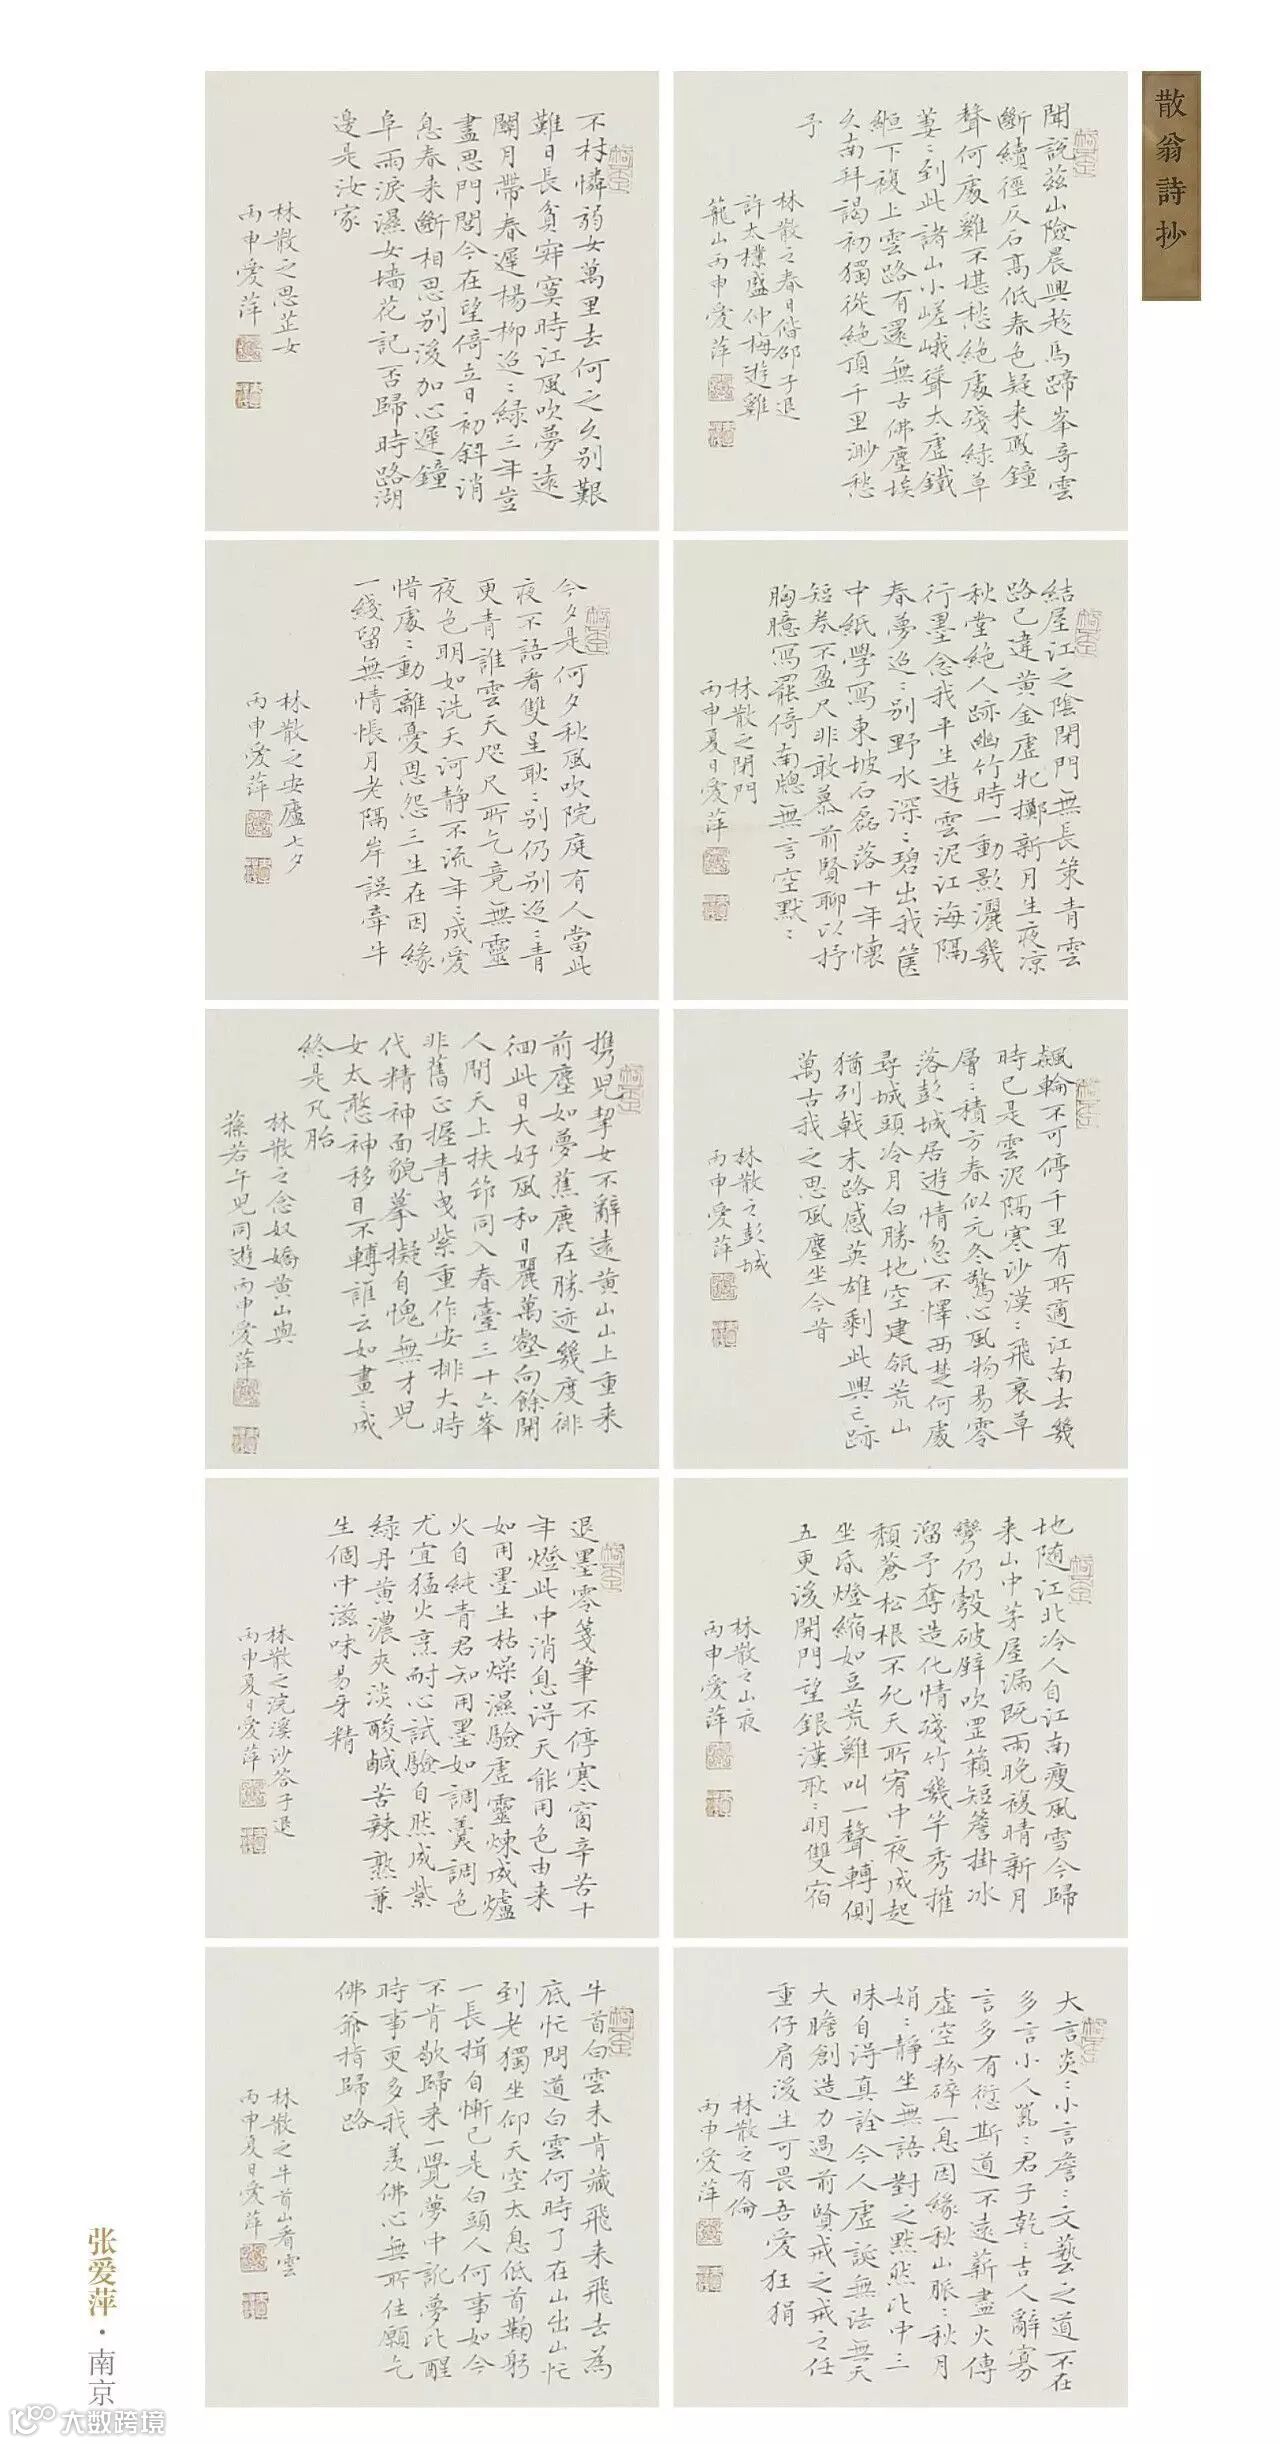 散翁詩抄
聞說茲山險晨興趁馬蹄峯奇雲
斷續徑仄石高低春色疑來眠鐘
聲何處雞不堪愁絕處殘綠草
萋〻到此諸山小嵯峨聳太虛鐵
絙下複上雲路有還無古佛塵埃
久南拜謁初獨從絕頂千里渺愁
予
林散之春日偕邵子退
許太樸盛仲梅遊雞
籠山丙申愛萍
不材憐弱女萬里去何之久別艱
難日長貧寂寞時江風吹夢遠
關月帶春遲楊柳迢〻綠三年豈
盡思門閭今在望倚立日初斜消
息春來斷相思別後加心遲鐘
阜雨淚濕女墻花記否歸時路湖
邊是汝家
林散之思芷女
丙申愛萍
結屋江之陰閉門無長策青雲
路已違黃金虛牝擲新月生夜涼
秋堂絕人跡幽竹時一動影灑幾
行墨念我平生遊雲泥江海隔
春夢迢〻別野水深〻碧出我篋
中紙學寫東坡石磊落十年懷
短卷不盈尺非敢慕前賢聊以抒
胸臆寫罷倚南牕無言空默〻
林散之閉門
丙申夏日愛萍
今夕是何夕秋風吹院庭有人當此
夜不語看雙星耿〻別仍別迢〻青
更青誰雲天咫尺所乞竟無靈
夜色明如洗天河靜不流年〻成愛
惜處〻動離憂恩怨三生在因緣
一綫留無情悵月老隔岸誤牽牛
林散之安廬七夕
丙申愛萍
飆輪不可停千里有所適江南去幾
時已是雲泥隔寒沙漠〻飛衰草
層〻積方春似元冬驚心風物易零
落彭城居遊情忽不懌西楚何處
尋城頭冷月白勝地空建瓴荒山
猶列戟末路感英雄剩此興亡跡
萬古我之思風塵坐今昔
林散之彭城
丙申愛萍
攜兒挈女不辭遠黃山山上重來
前塵如夢蕉鹿在勝迹幾度徘
徊此日大好風和日麗萬壑向餘開
人間天上扶筇同入春臺三十六峯
非舊正握青曳紫重作安排大時
代精神面貌摹擬自愧無才兒
女太憨神移目不轉誰云如畫〻成
終是凡胎
林散之念奴嬌黃山與
蓀若午兒同遊丙申愛萍
地隨江北冷人自江南瘦風雪今歸
來山中茅屋漏既雨晚複晴新月
彎仍彀破壁吹罡籟短簷掛冰
溜予奪造化情殘竹幾竿秀摧
頹蒼松根不死天所宥中夜成起
坐昏燈縮如豆荒雞叫一聲轉側
五更後開門望銀漢耿〻明雙宿
林散之山夜
丙申愛萍
退墨零箋筆不停寒窗辛苦十
年燈此中消息得天能用色由來
如用墨生枯燥濕驗虛靈煉成爐
火自純青君知用墨如調羹調色
尤宜猛火烹耐心試驗自然成紫
綠丹黃濃夾淡酸鹹苦辣熟兼
生個中滋味易牙精
林散之浣溪沙答子退
丙申夏日愛萍
大言炎〻小言詹〻文藝之道不在
多言小人嵬〻君子乾〻吉人辭寡
言多有愆斯道不遠薪盡火傳
虛空粉碎一息因緣秋山脈〻秋月
娟〻靜坐無語對之默然此中三
昧自得真詮今人虛誕無法無天
大瞻創造力過前賢戒之戒之任
重仔肩後生可畏吾愛狂狷
林散之有倫
丙申愛萍
牛首白雲未肯藏飛來飛去為
底忙問道白雲何時了在山出山忙
到老獨坐仰天空太息低首鞠躬
一長揖自慚已是白頭人何事如今
不肯歇歸來一覺夢中訛夢比醒
時事更多我羨佛心無所住願乞
佛爺指歸路
林散之牛首山看雲
丙申夏日愛萍
张爱萍·南京
大数跨境